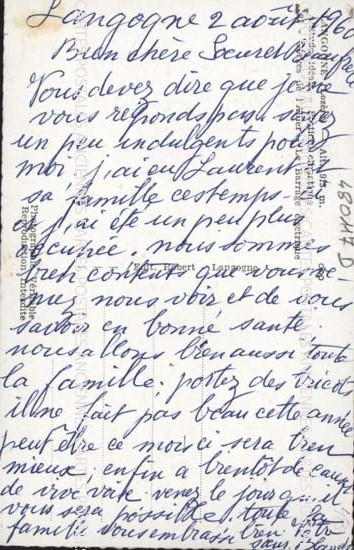 Langogne 2 août 1960
Bien chère Soeur et Beau frère
Vous devez dire que je ne
vous réponds pas soyez
un peu indulgents pour
moi j'ai eu Laurent
sa famille ces temps-
ci j'ai été un peu plus
occupée. nous sommes
bien contents que vous ve
niez nous voir et de vous
savoir en bonne santé
nous allons bien aussi toute
la famille. portez des tricots
il ne fait pas beau cette année
peut être ce mois ci sera bien
mieux, enfin a bientôt de causer
de vive voix venez le jour qu'il
vous sera possible. toute la
famille vous embrasse bien
LANGOGNE (Lozère) Alt. 915 m.
Le Barrage
Phot. Hébert Langogne
Photographie véritable
Reproduction interdite
480117 D